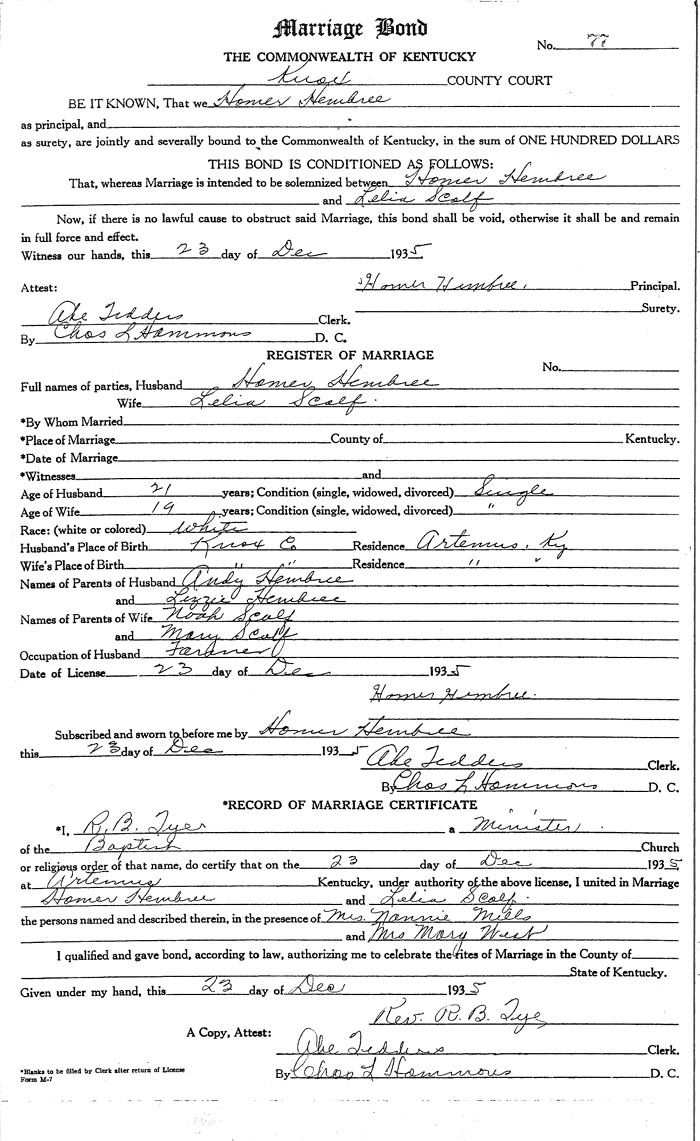 Marriage Bond
No. 77
THE COMMONWEALTH OF KENTUCKY
Knox COUNTY COURT
BE IT KNOWN, That we Homer Hembree
as principal, and
as surety, are jointly and severally bound to the Commonwealth of Kentucky, in the sum of ONE HUNDRED DOLLARS
THIS BOND IS CONDITIONED AS FOLLOWS:
That, whereas Marriage is intended to be solemnized between Homer Hembree
and Lelia Scalf
Now, if there is no lawful cause to obstruct said Marriage, this bond shall be void, otherwise it shall be and remain
in full force and effect.
Witness our hands, this 23 day of Dec 1935
Attest: Homer Hembree. Principal.
Surety.
Abe Tedders Clerk.
By Chas L Hammons D. C.
REGISTER OF MARRIAGE
No.
Full names of parties, Husband Homer Hembree
Wife Lelia Scalf.
*By Whom Married
*Place of Marriage County of Kentucky.
*Date of Marriage
*Witnesses and
Age of Husband 21 years; Condition (single, widowed, divorced) Single
Age of Wife 19 years; Condition (single, widowed, divorced) "
Race: (white or colored) White
Husband's Place of Birth Knox Co Residence Artemus. Ky
Wife's Place of Birth " " Residence " "
Names of Parents of Husband Andy Hembree
and Lizzie Hembree
Names of Parents of Wife Noah Scalf
and Mary Scalf
Occupation of Husband Farmer
Date of License 23 day of Dec 1935
Homer Hembree.
Subscribed and sworn to before me by Homer Hembree
this 23 day of Dec 1935
Abe Tedders Clerk.
By Chas L Hammons D. C.
*RECORD OF MARRIAGE CERTIFICATE
*I, R. B. Tye a Minister.
of the Baptist Church
or religious order of that name, do certify that on the 23 day of Dec 1935
at Artemus Kentucky, under authority of the above license, I united in Marriage
Homer Hembree and Lelia Scalf.
the persons named and described therein, in the presence of Mrs. Nannie Mills
and Mrs Mary West
I qualified and gave bond, according to law, authorizing me to celebrate the rites of Marriage in the County of
State of Kentucky.
Given under my hand, this 23 day of Dec 1935
Rev. R. B. Tye
A Copy, Attest:
Abe Tedders Clerk.
By Chas L Hammons D. C.
*Blanks to be filled by Clerk after return of License
Form M-7